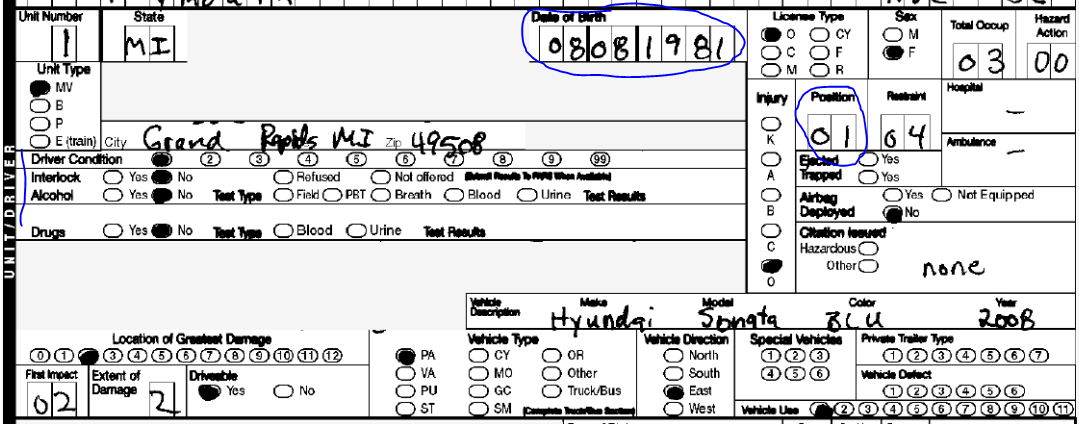 Unit Number State Date of Birth License Type Sex Total Occup Hazard Action
1 MI 08081981 O CY M 03 00
C F F
M R
Unit Type
MV
B
P
E (train) City Grand Rapids MI Zip 49508
Injury Position Restraint Hospital
K 01 04 —
Ambulance
—
UNIT/DRIVER
Driver Condition 2 3 4 5 6 7 8 9 99
Interlock Yes No Refused Not offered (Submit Results To FARS When Available)
Alcohol Yes No Test Type Field PBT Breath Blood Urine Test Results
Drugs Yes No Test Type Blood Urine Test Results
A Ejected Yes
Trapped Yes
B Airbag Deployed Yes Not Equipped
No
C Citation Issued
Hazardous
Other none
O
Vehicle Description Make Model Color Year
Hyundai Sonata BLU 2008
Location of Greatest Damage
0 1 3 4 5 6 7 8 9 10 11 12
First Impact 02 Extent of Damage 2 Driveable Yes No
Vehicle Type
PA CY OR
VA MO Other
PU GC Truck/Bus
ST SM (Complete Truck/Bus Section)
Vehicle Direction
North
South
East
West
Special Vehicles
1 2 3
4 5 6
Private Trailer Type
1 2 3 4 5 6 7
Vehicle Defect
1 2 3 4 5 6
Vehicle Use 2 3 4 5 6 7 8 9 10 11